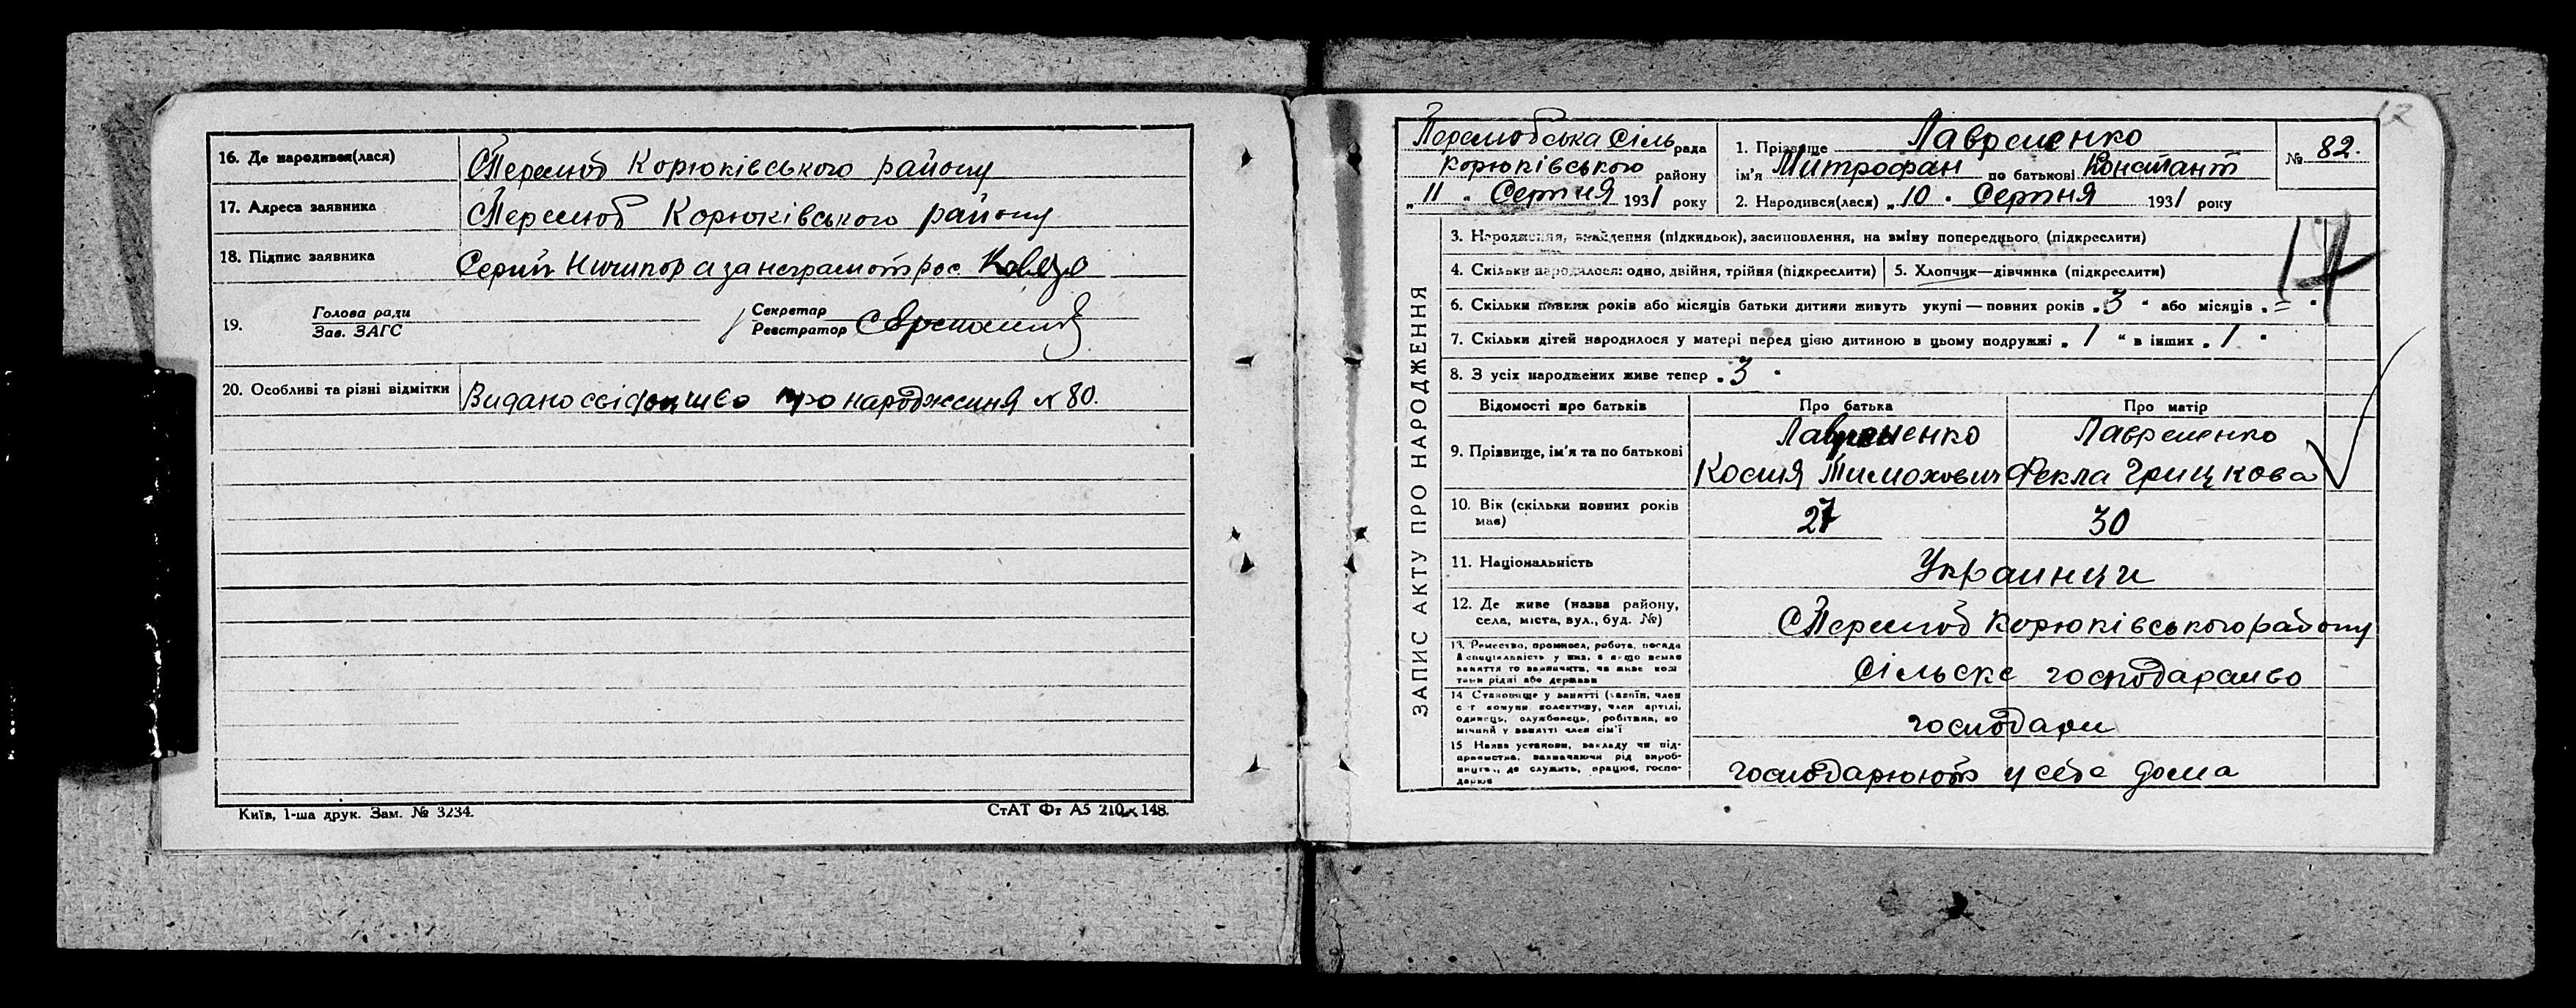 16. Де народився(лася) С Перелюб Корюківського району
17. Адреса заявника С Перелюб Корюківського району
18. Підпис заявника Серий Ничипор а за неграмот рос
19. Голова ради Секретар
Зав. ЗАГС Реєстратор
20. Особливі та різні відмітки Видано свідоцтво про народження № 80.
Київ, 1-ша друк. Зам. № 3234.
СтАТ Фт А5 210 × 148.
12
Перелюбська Сіль рада
Корюківського району
„ 11 “ Серпня 1931 року
1. Прізвище Лавременко
ім'я Митрофан по батькові Констант
2. Народився(лася) „ 10 “ Серпня 1931 року
№ 82.
ЗАПИС АКТУ ПРО НАРОДЖЕННЯ
3. Народження, знайдення (підкидьок), засиновлення, на зміну попереднього (підкреслити)
4. Скільки народилося: одно, двійня, трійня (підкреслити) 5. Хлопчик—дівчинка (підкреслити)
6. Скільки повних років або місяців батьки дитини живуть укупі — повних років „ 3 “ або місяців „ = “
7. Скільки дітей народилося у матері перед цією дитиною в цьому подружжі „ 1 “ в інших „ 1 “
8. З усіх народжених живе тепер „ 3 “
Відомості про батьків Про батька Про матір
9. Прізвище, ім'я та по батькові
Лавременко Лавременко
Костя Тимохович Фекла Грицкова
10. Вік (скільки повних років має) 27 30
11. Національність Украинци
12. Де живе (назва району, села, міста, вул., буд. №) С Перелюб Корюківського району
13. Ремество, промисел, робота, посада й спеціяльність у них, а якщо немає заняття то зазначити, чи живе коштами рідні або держави
Сільске господарство
14 Становище у занятті (хазяїн, член с-г комуни колективу, член артілі, одинець, службовець, робітник, помічний у занятті член сім'ї
господари
15 Назва установи, закладу чи підприємства, зазначаючи рід виробництва, де служить, працює, господарює
господарюють у себе дома